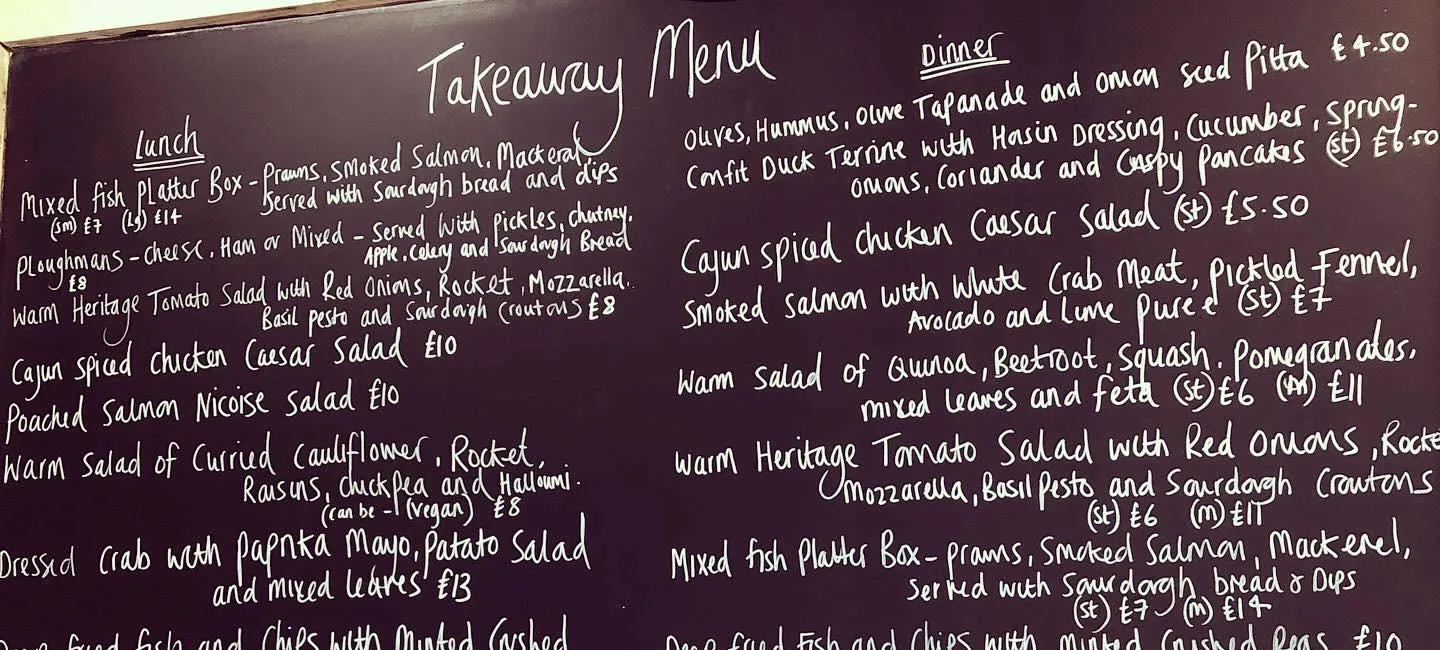 Takeaway Menu
Lunch
Mixed fish Platter Box - Prawns, Smoked Salmon, Mackeral,
Served with Sourdough bread and dips
(sm) £7 (Lg) £14
Ploughmans - cheese, Ham or Mixed - Served With Pickles, chutney,
Apple, Celery and Sourdough Bread
£8
Warm Heritage Tomato Salad with Red Onions, Rocket, Mozzarella,
Basil Pesto and Sourdough Croutons £8
Cajun spiced chicken Caesar Salad £10
Poached Salmon Nicoise Salad £10
Warm Salad of Curried Cauliflower, Rocket,
Raisins, chickpea and Halloumi.
(can be - (vegan) £8
Dressed Crab with Paprika Mayo, Patato Salad
and mixed leaves £13
Deep fried fish and Chips with Minted Crushed
Dinner
Olives, Hummus, Olive Tapanade and onion seed Pitta £4.50
Confit Duck Terrine with Hoisin Dressing, Cucumber, Spring-
onions, Coriander and Crispy Pancakes (st) £6.50
Cajun spiced chicken Caesar Salad (st) £5.50
Smoked Salmon with White Crab Meat, Pickled Fennel,
Avocado and Lime Puree (st) £7
Warm Salad of Quinoa, Beetroot, Squash, Pomegranates,
mixed leaves and feta (st) £6 (M) £11
Warm Heritage Tomato Salad with Red Onions, Rocke
Mozzarella, Basil Pesto and Sourdough Croutons
(st) £6 (m) £11
Mixed fish Platter Box - prawns, Smoked Salmon, Mackerel,
Served with Sourdough bread & Dips
(st) £7 (m) £14
Deep fried Fish and Chips with minted Crushed Peas £10